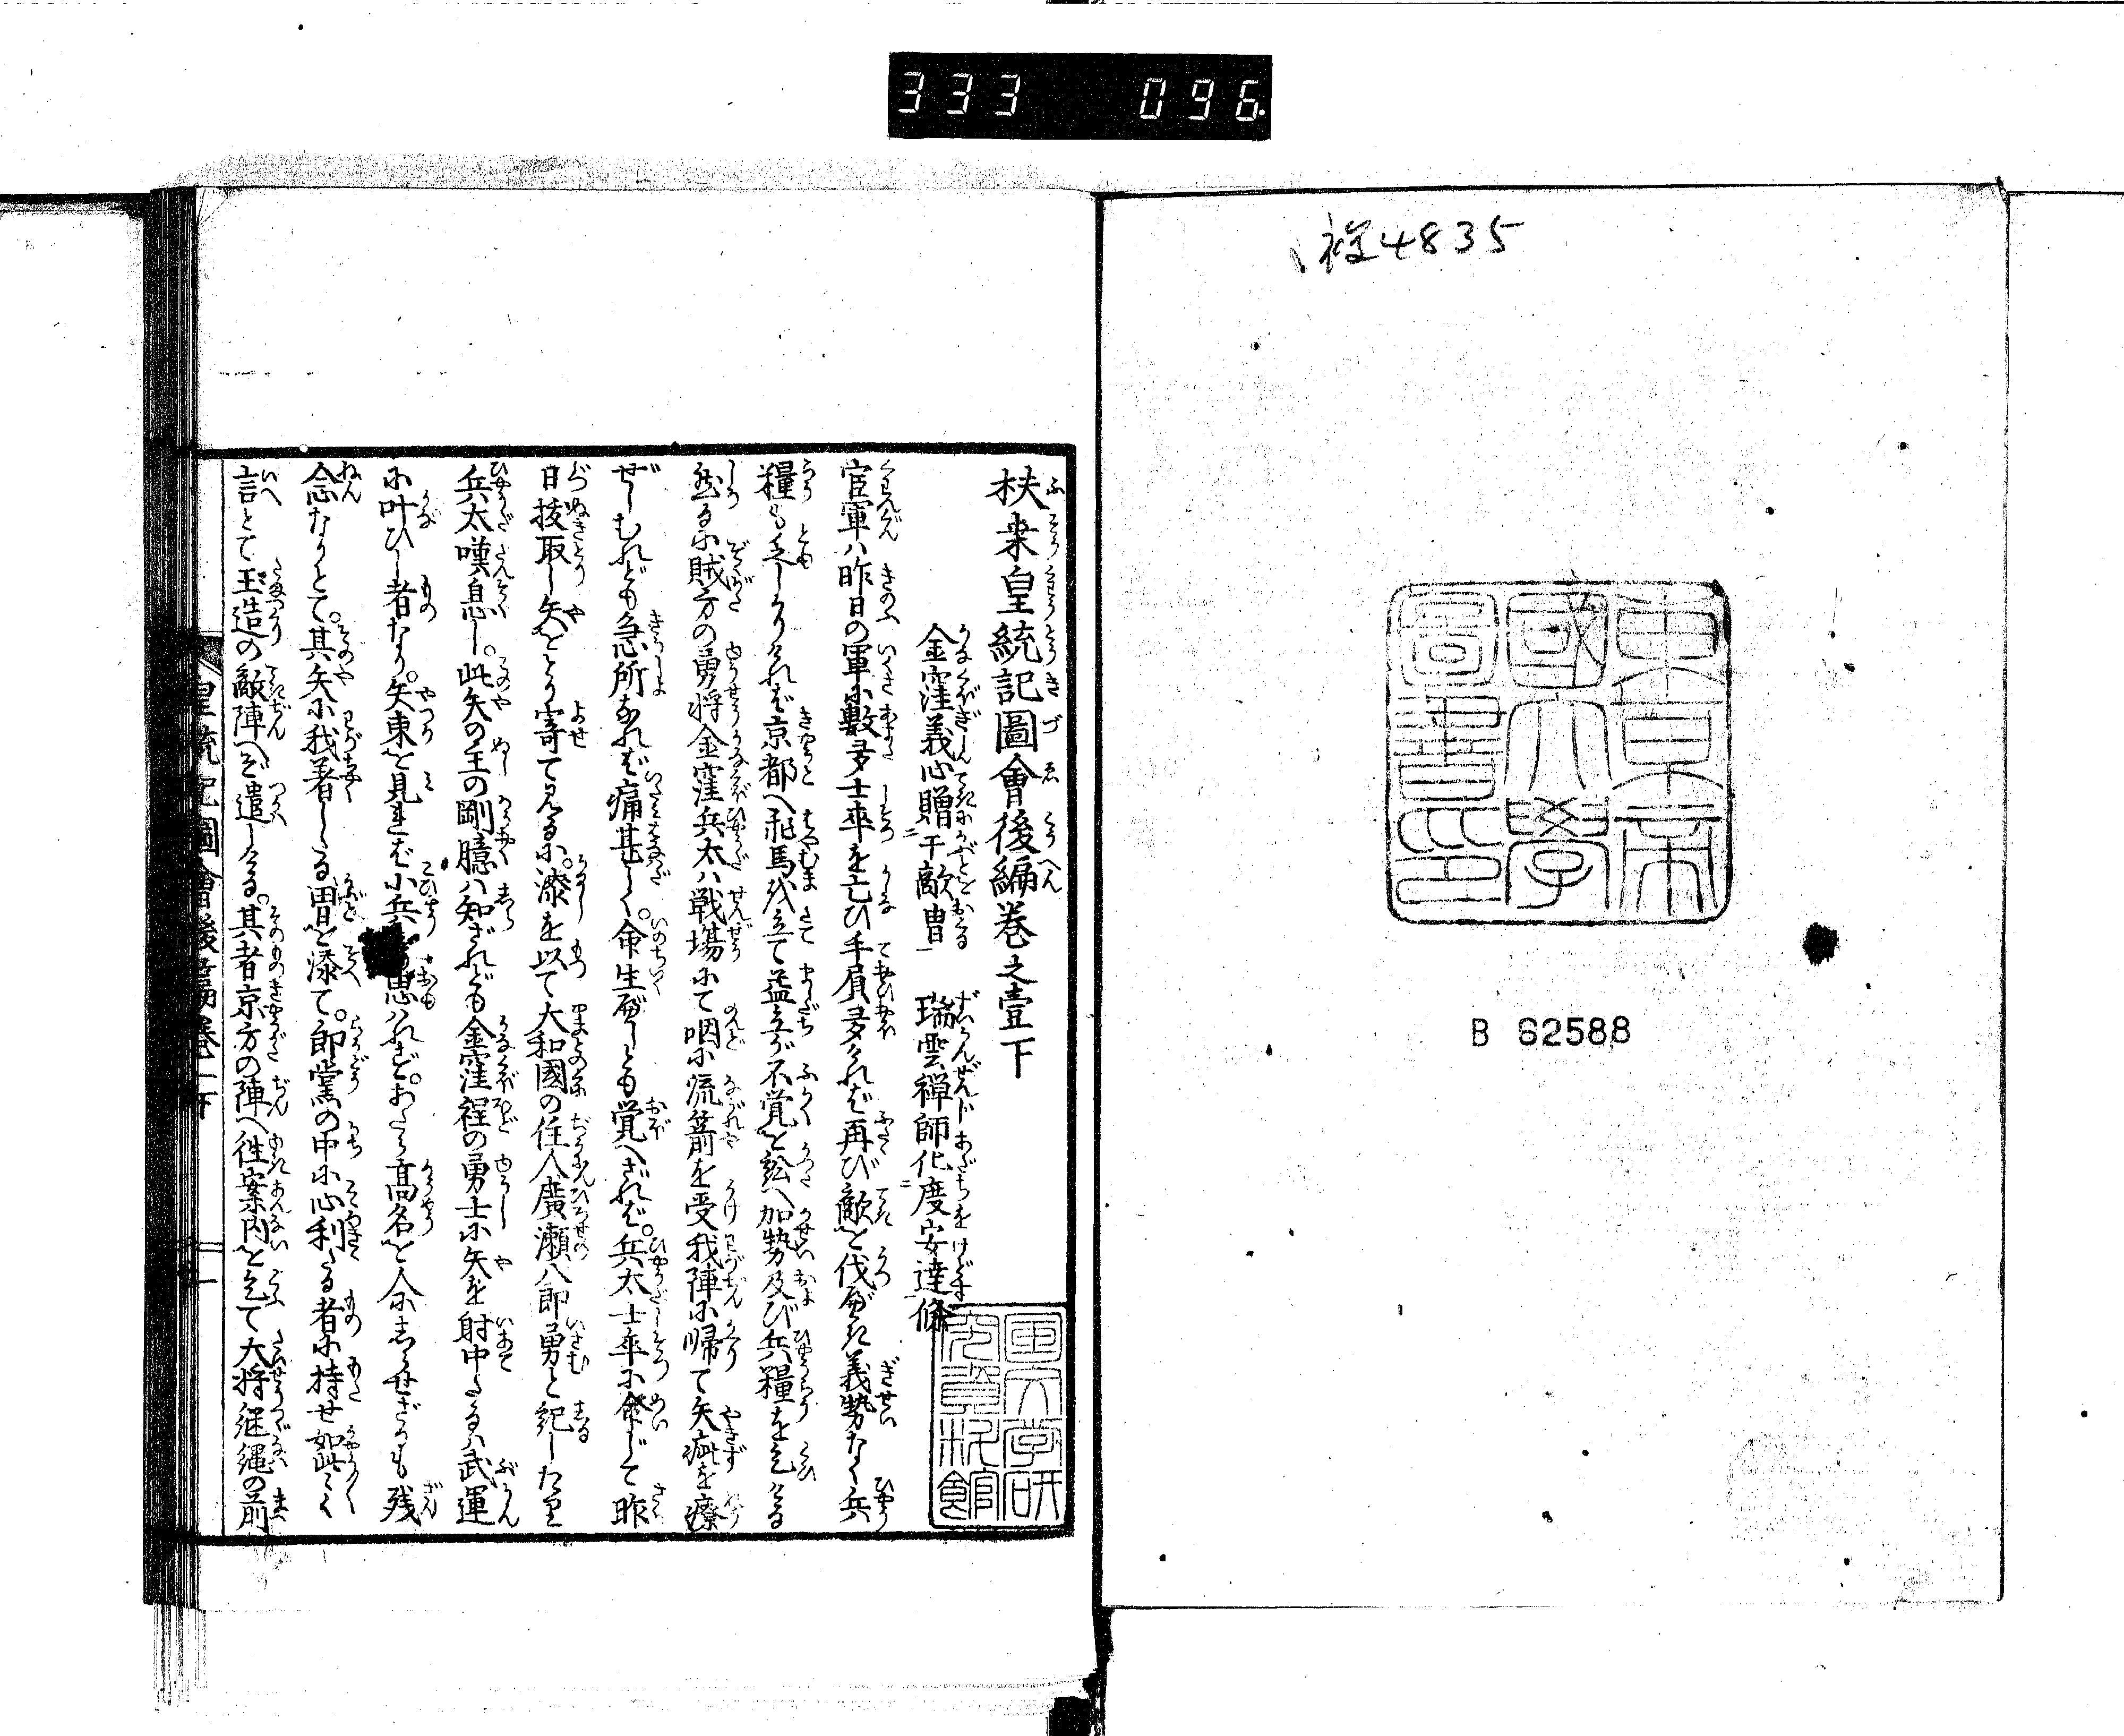 333 096
複4835
東京帝
國大學
圖書印
B 62588
扶桒皇統記圖會後編巻之壹下
金窪義心贈于敵冑 瑞雲禅師化度安達條
国文学研
究資料館
官軍ハ昨日の軍に数多士卒を亡ひ手屓多けれバ再び敵を伐べき義勢なく兵
糧も乏しかりけれバ京都へ飛馬を立て益立が不覚を訟へ加勢及び兵糧を乞ける
然るに賊方の勇将金窪兵太ハ戦場にて咽に流箭を受我陣に帰て矢疵を療
ぜしむれども急所なれバ痛甚しく。命生べしとも覚へざれバ。兵太士卒に命じて昨
日抜取し矢をとり寄て見るに。漆を以て大和國の住人廣瀬八郎勇と記したり
兵太嘆息し。此矢の主の剛臆ハ知ざれども金窪程の勇士に矢を射中たるハ武運
に叶ひし者なり。矢束を見れバ小兵思ハれど。あたら高名を人にしらせざるも残
念なりとて。其矢に我着したる冑を添て。郎党の中に心利たる者に持せ如此々々
言とて玉造の敵陣へぞ遣しける。其者京方の陣へ往案内を乞て大将継縄の前
皇統記圖會後編巻一下 一